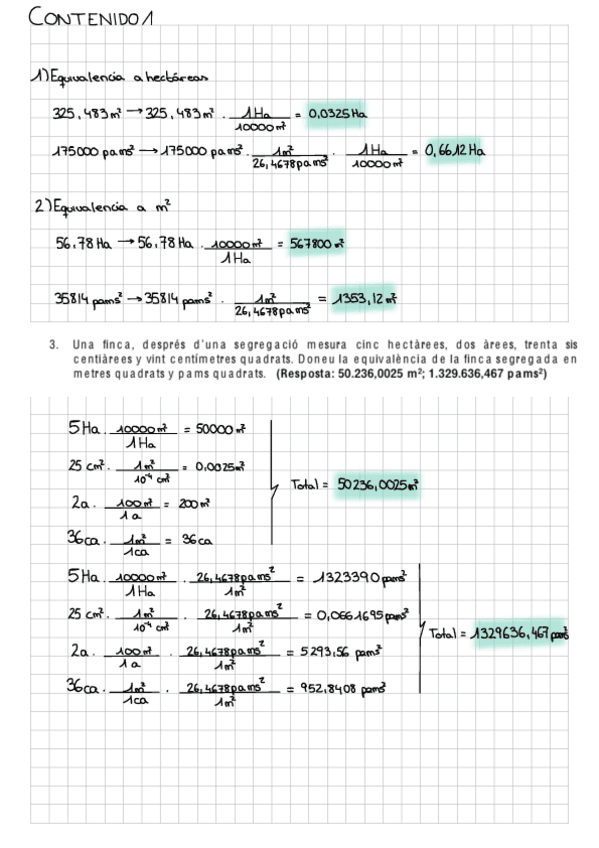 CONTENIDO 1
1) Equivalencia a hectáreas
325,483 m² → 325,483 m² · 1 Ha / 10000 m² = 0,0325 Ha
175000 pams² → 175000 pams² · 1 m² / 26,4678 pams² · 1 Ha / 10000 m² = 0,6612 Ha
2) Equivalencia a m²
56,78 Ha → 56,78 Ha · 10000 m² / 1 Ha = 567800 m²
35814 pams² → 35814 pams² · 1 m² / 26,4678 pams² = 1353,12 m²
3. Una finca, després d'una segregació mesura cinc hectàrees, dos àrees, trenta sis
centiàrees y vint centímetres quadrats. Doneu la equivalència de la finca segregada en
metres quadrats y pams quadrats. (Resposta: 50.236,0025 m²; 1.329.636,467 pams²)
5 Ha · 10000 m² / 1 Ha = 50000 m²
25 cm² · 1 m² / 10⁻⁴ cm² = 0,0025 m²
2a · 100 m² / 1 a = 200 m²
36ca · 1 m² / 1ca = 36 ca
Total = 50236,0025 m²
5 Ha · 10000 m² / 1 Ha · 26,4678 pams² / 1 m² = 1323390 pams²
25 cm² · 1 m² / 10⁻⁴ cm² · 26,4678 pams² / 1 m² = 0,0661695 pams²
2a · 100 m² / 1 a · 26,4678 pams² / 1 m² = 5293,56 pams²
36ca · 1 m² / 1ca · 26,4678 pams² / 1 m² = 952,8408 pams²
Total = 1329636,467 pams²